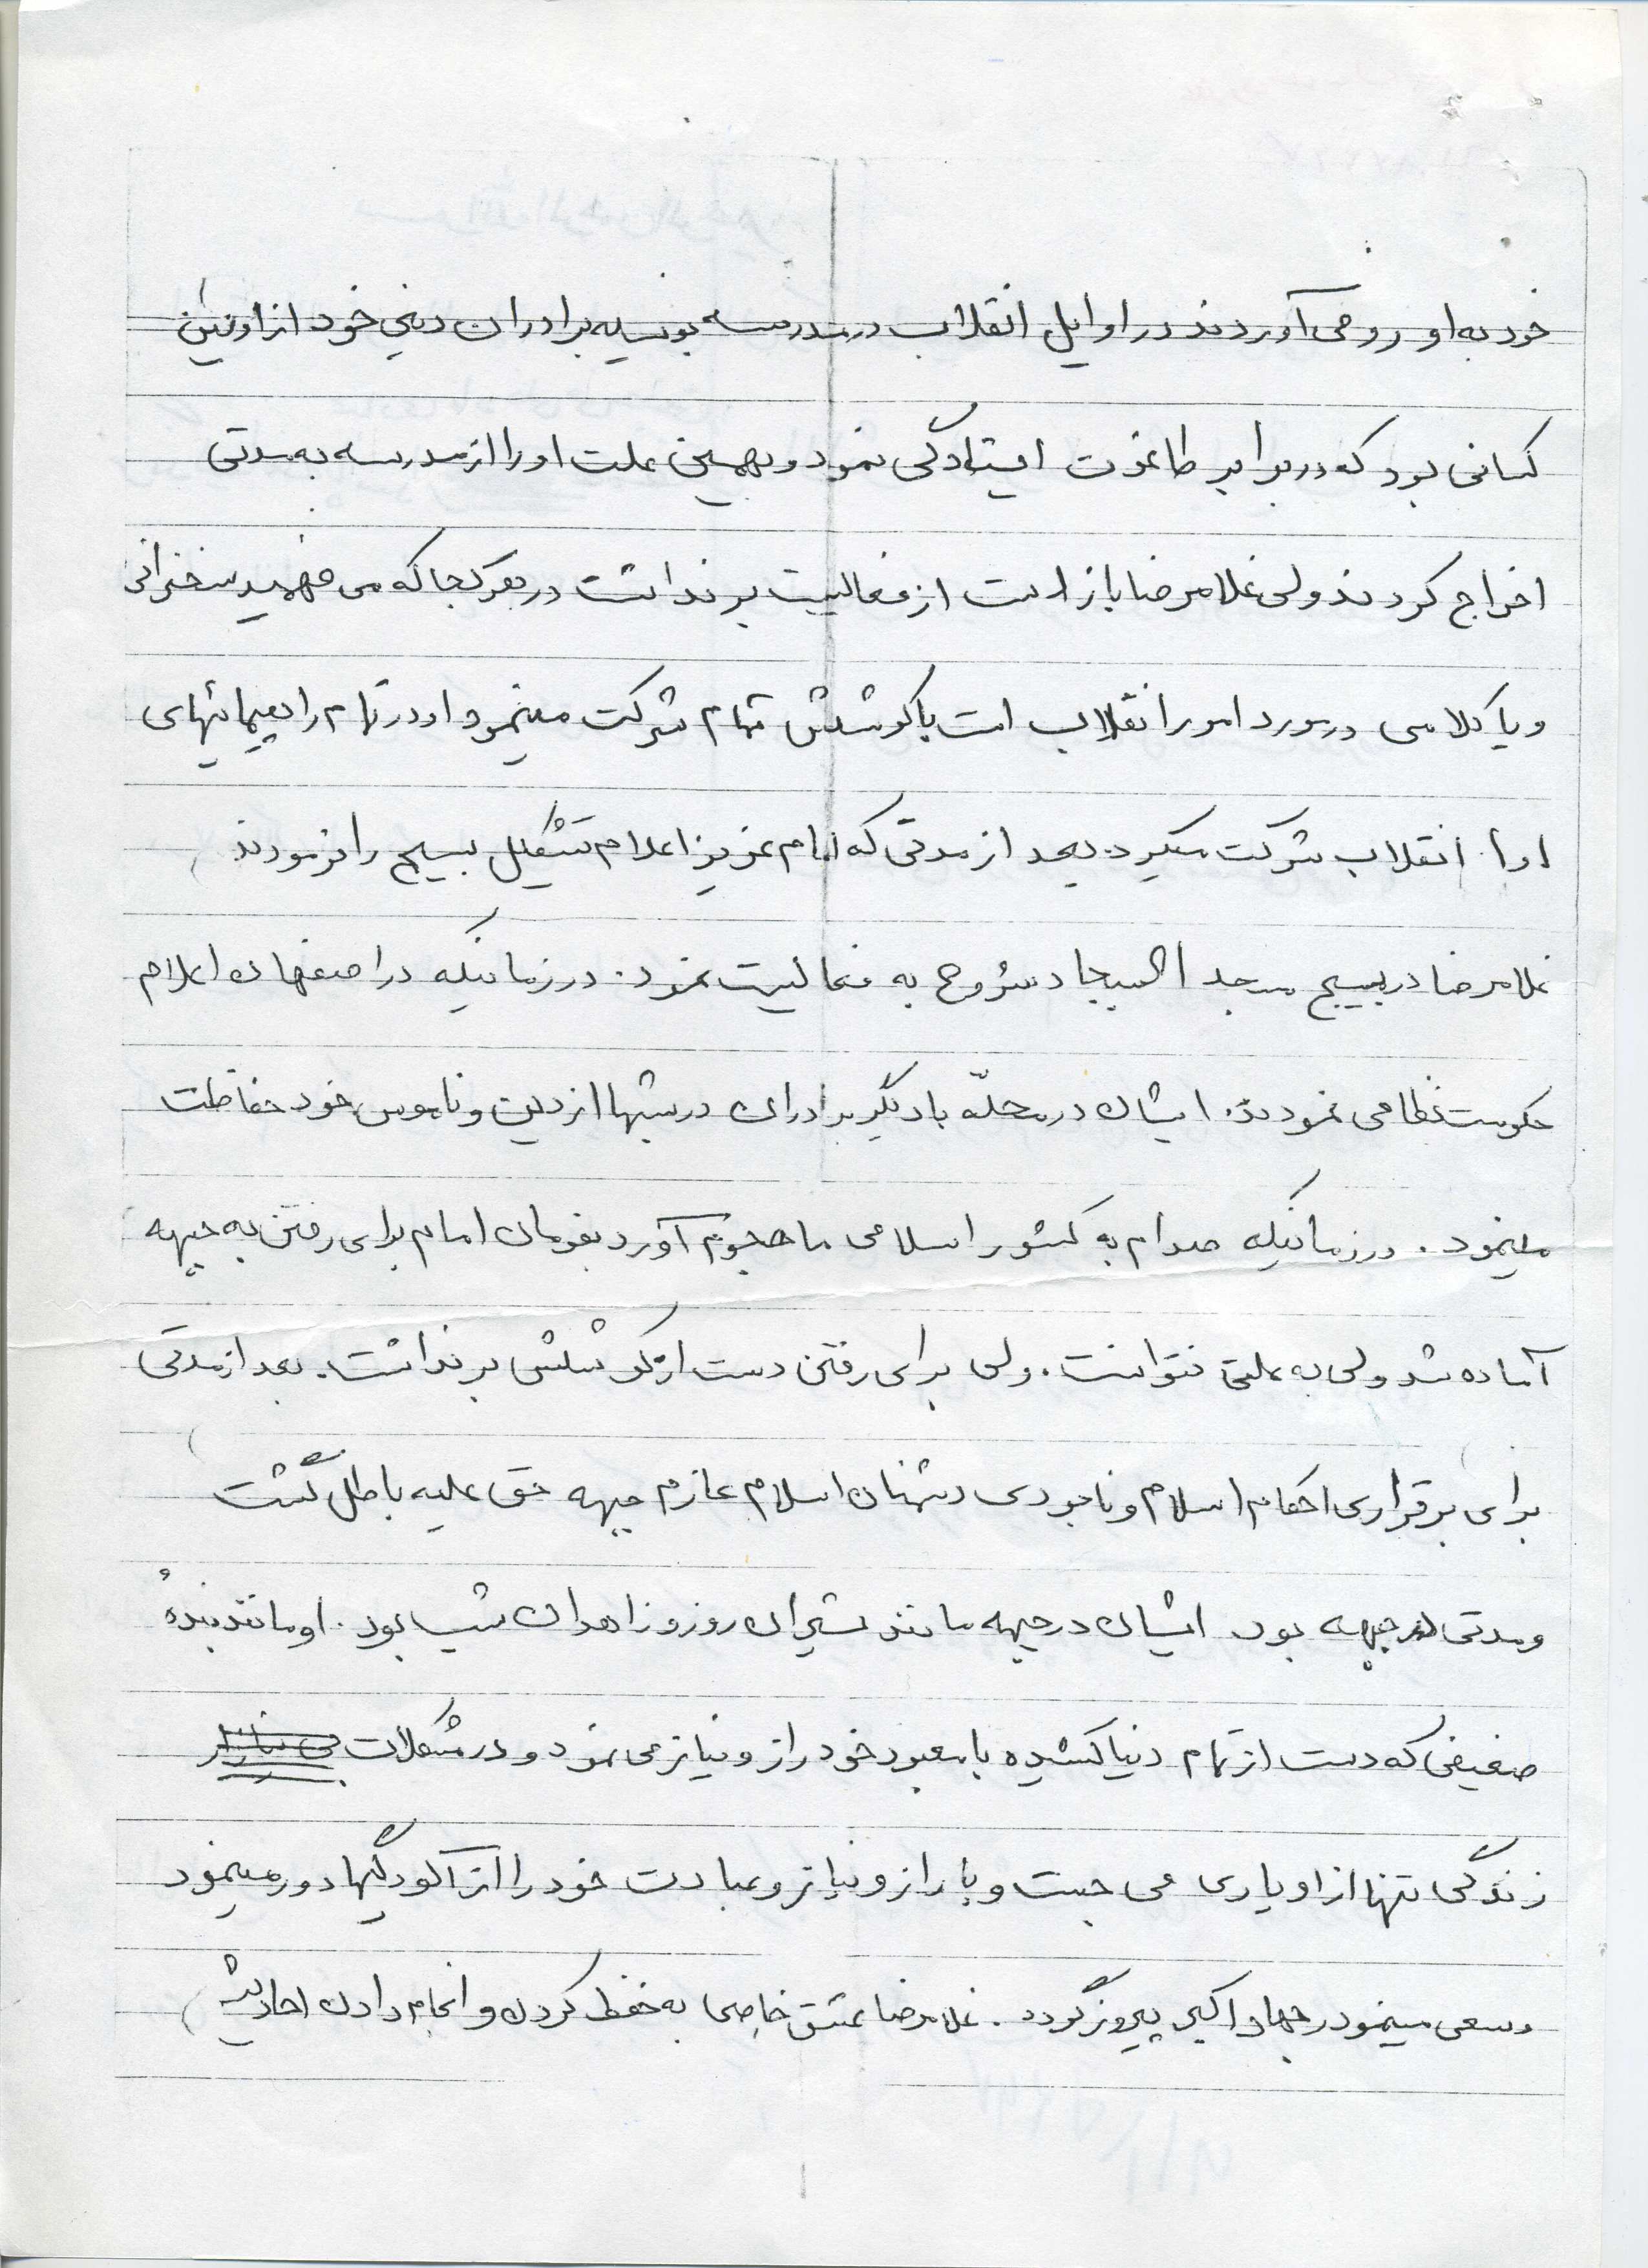 خود به او رو می آوردند در اوایل انقلاب در مدرسه بوسیله برادران دینی خود از اولین
کسانی بود که در برابر طاغوت ایستادگی نمود و بهمین علت او را از مدرسه به مدتی
اخراج کردند ولی غلامرضا باز دست از فعالیت برنداشت در هر کجا که می فهمید سخنرانی
و یا کلامی در مورد امور انقلاب است با کوشش تمام شرکت مینمود او در تمام راهپیمائیهای
انقلاب شرکت میکرد. بعد از مدتی که امام عزیز اعلام تشکیل بسیج را فرمودند
غلامرضا در بسیج مسجد السجاد شروع به فعالیت نمود. در زمانیکه در اصفهان اعلام
حکومت نظامی نمودند. ایشان در محلّه با دیگر برادران در شبها از دین و ناموس خود حفاظت
مینمود. در زمانیکه صدام به کشور اسلامی ما هجوم آورد بفرمان امام برای رفتن به جبهه
آماده شد ولی به علتی نتوانست. ولی برای رفتن دست از کوشش برنداشت. بعد از مدتی
برای برقراری احکام اسلام و نابودی دشمنان اسلام عازم جبهه حق علیه باطل گشت
و مدتی در جبهه بود ایشان در جبهه مانند شیران روز و زاهدان شب بود. او مانند بندهٔ
ضعیفی که دست از تمام دنیا کشیده با معبود خود راز و نیاز می نمود و در مشکلات
زندگی تنها از او یاری می جست و با راز و نیاز و عبادت خود را از آلودگیها دور مینمود
و سعی مینمود در جهاد اکبر پیروز گردد. غلامرضا عشق خاصی به حفظ کردن و انجام دادن احادیث